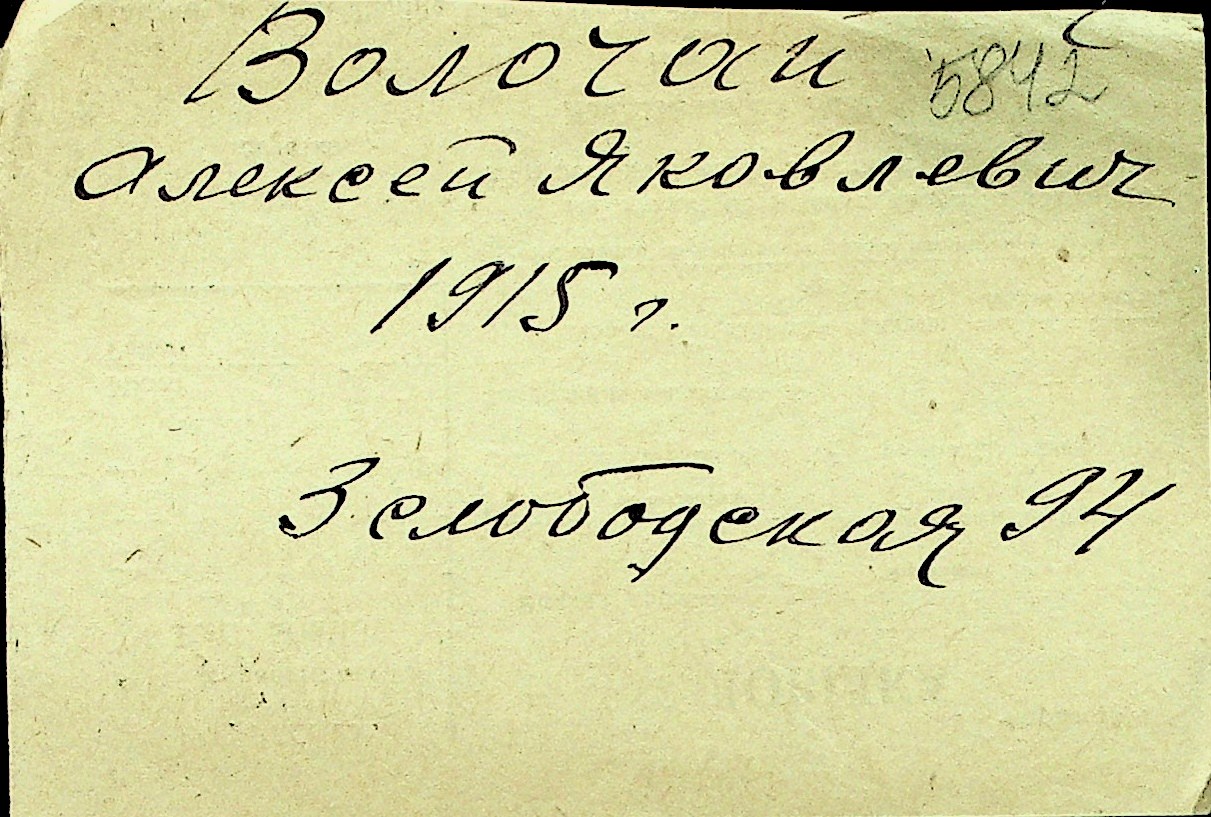 Волочай 5842
Алексей Яковлевич
1915 г.
3 слободская 94